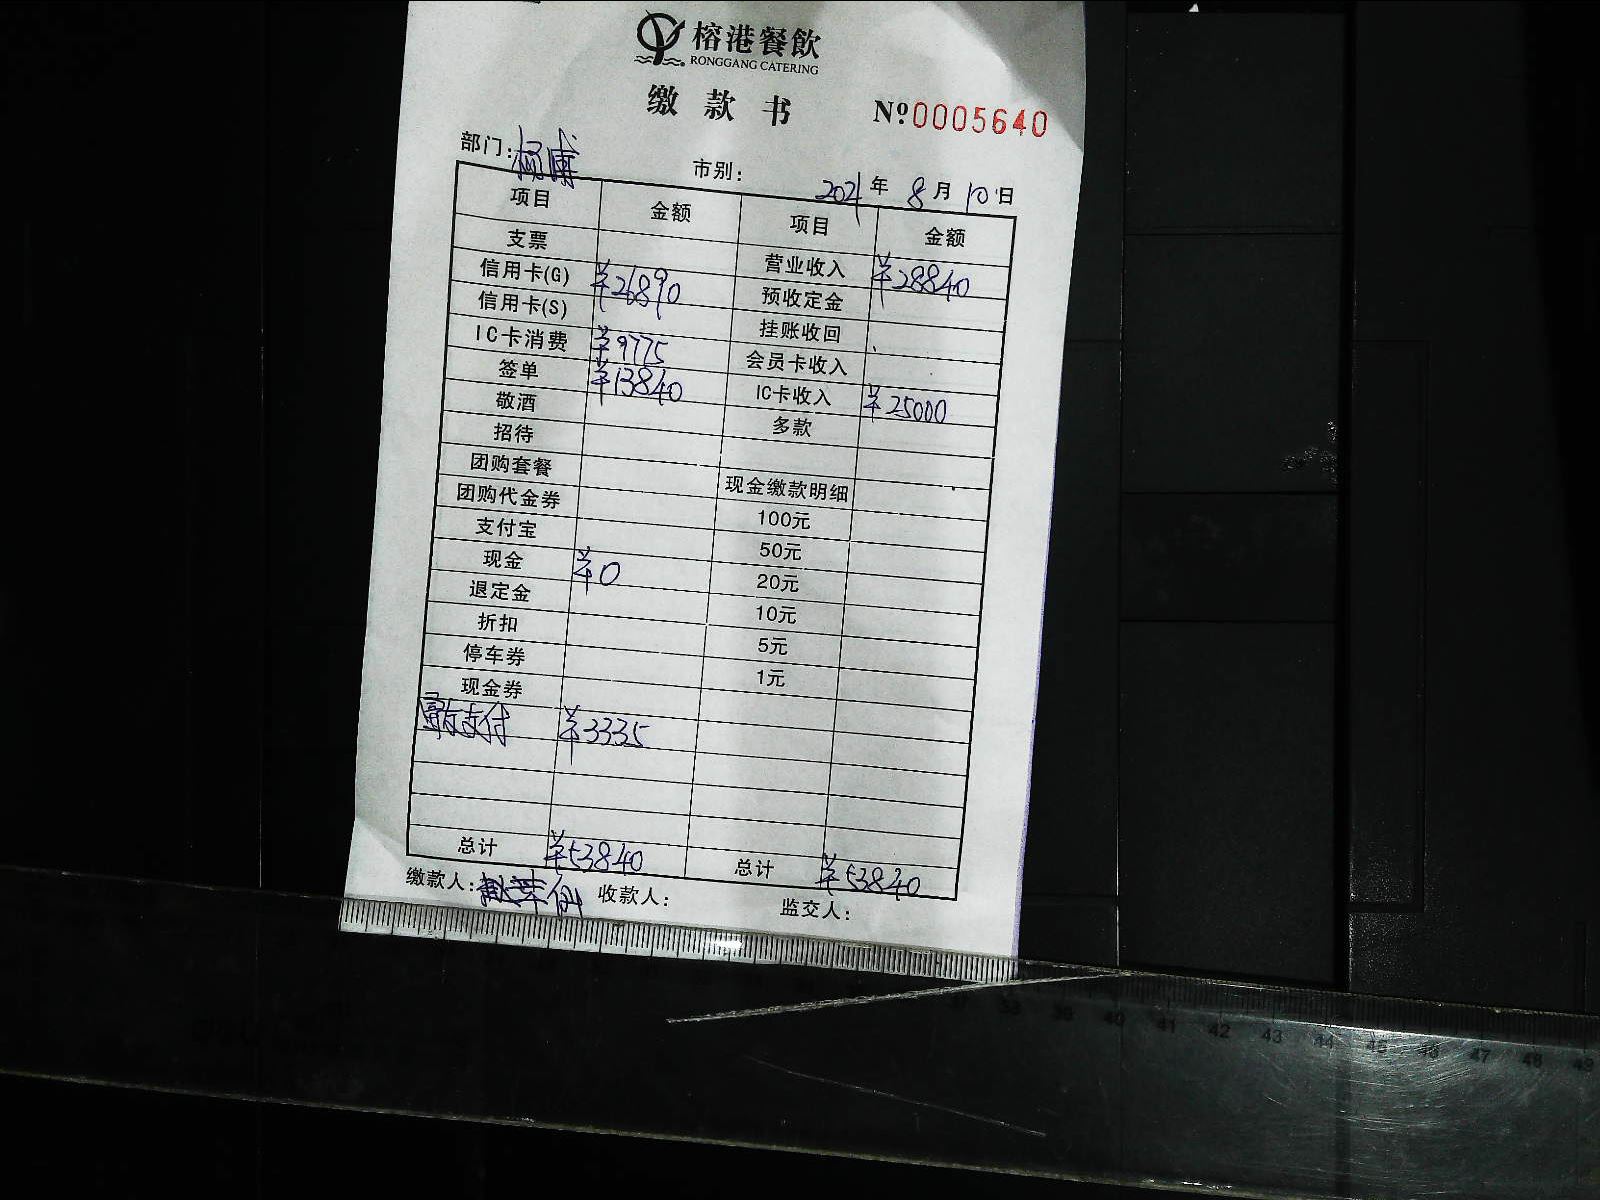 榕港餐飲
RONGGANG CATERING
缴款书 Nº0005640
部门: 市别: 2021年8月10日
项目 金额 项目 金额
支票 营业收入 ¥28840
信用卡(G) ¥26890 预收定金
信用卡(S) 挂账收回
IC卡消费 ¥9775 会员卡收入
签单 ¥13840 IC卡收入 ¥25000
敬酒 多款
招待
团购套餐 现金缴款明细
团购代金券 100元
支付宝 50元
现金 ¥0 20元
退定金 10元
折扣 5元
停车券 1元
现金券
支付 ¥3335
总计 ¥53840 总计 ¥53840
缴款人: 收款人: 监交人:
38 39 40 41 42 43 44 45 46 47 48 49